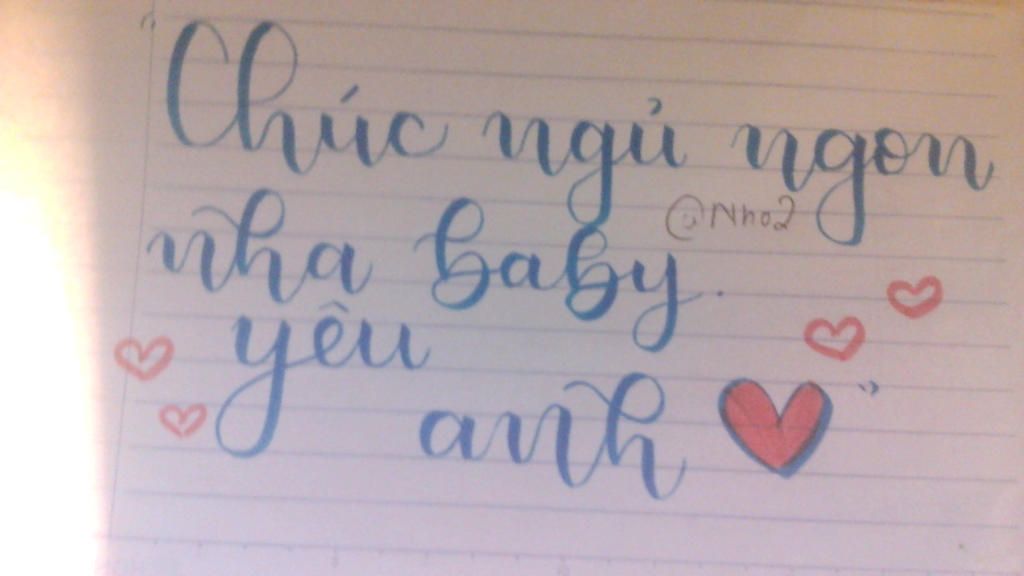 "Chúc ngủ ngon
@Nho2
nha baby.
yêu
anh "